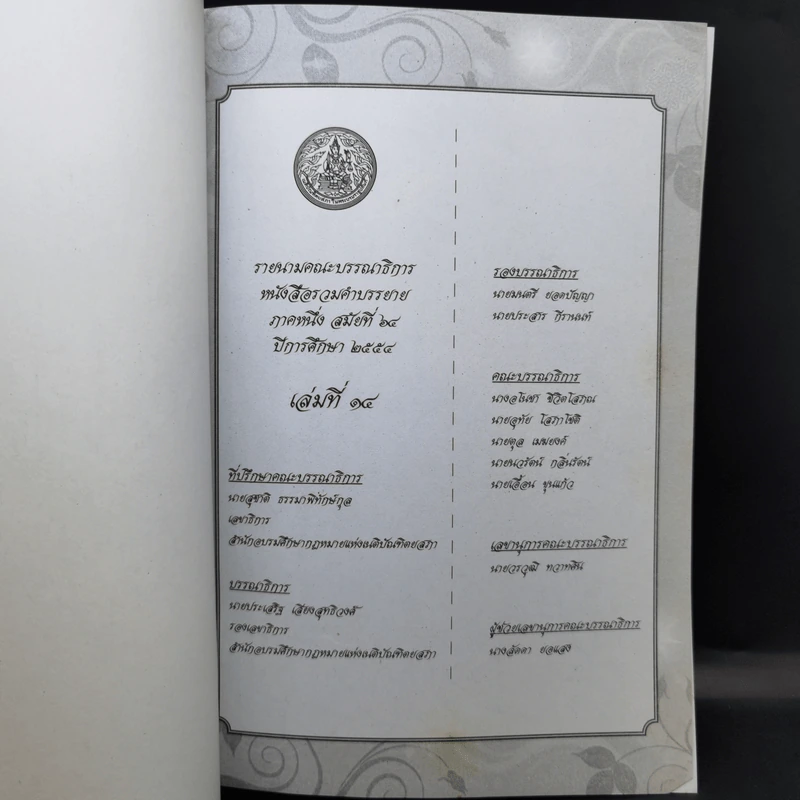 รายนามคณะบรรณาธิการ
หนังสือรวมคำบรรยาย
ภาคหนึ่ง สมัยที่ ๖๔
ปีการศึกษา ๒๕๕๔
เล่มที่ ๑๔
ที่ปรึกษาคณะบรรณาธิการ
นายสุชาติ ธรรมาพิทักษ์กุล
เลขาธิการ
สำนักอบรมศึกษากฎหมายแห่งเนติบัณฑิตยสภา
บรรณาธิการ
นายประเสริฐ เสียงสุทธิวงศ์
รองเลขาธิการ
สำนักอบรมศึกษากฎหมายแห่งเนติบัณฑิตยสภา
รองบรรณาธิการ
นายมนตรี ยอดปัญญา
นายประสาร กีรานนท์
คณะบรรณาธิการ
นางอโนชา ชีวิตโสภณ
นายอุทัย โสภาโชติ
นายตุล เมฆยงค์
นายนวรัตน์ กลิ่นรัตน์
นายเอื้อน ขุนแก้ว
เลขานุการคณะบรรณาธิการ
นายวรวุฒิ ทวาทศิน
ผู้ช่วยเลขานุการคณะบรรณาธิการ
นางลัดดา ยอแสง